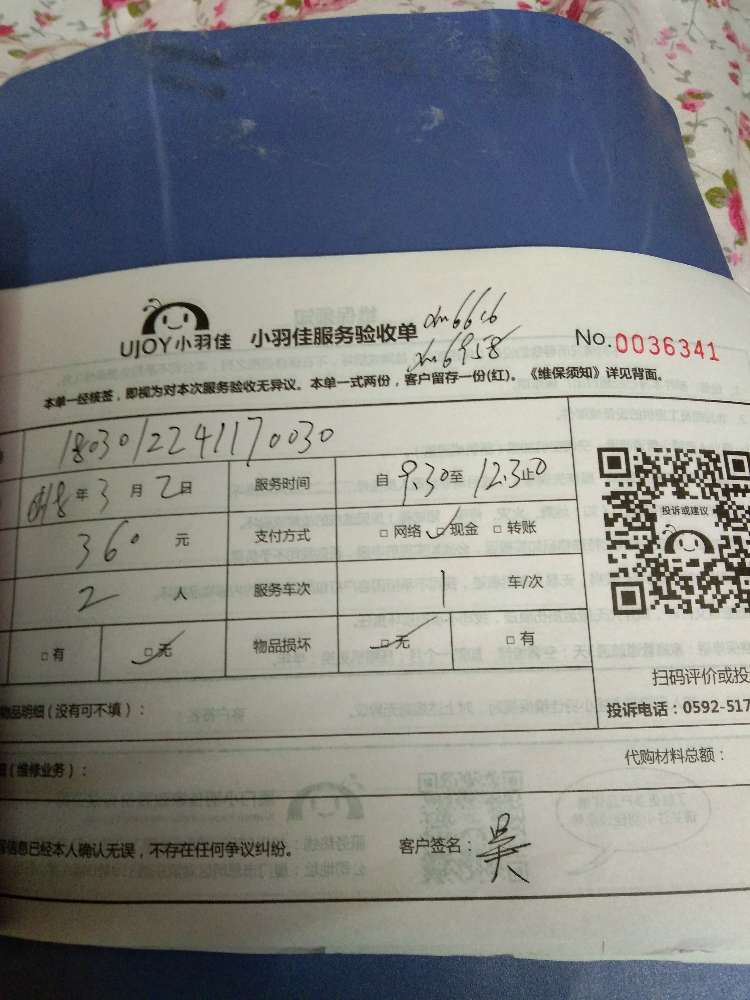 UJOY小羽佳 小羽佳服务验收单 xm6606
xm6958
No.0036341
本单一经核签，即视为对本次服务验收无异议。本单一式两份，客户留存一份(红)。《维保须知》详见背面。
1803012241170030
2018年3月2日 服务时间 自9:30至12:30止
360元 支付方式 □网络 □现金 □转账
2人 服务车次 1 车/次
□有 □无 物品损坏 □无 □有
投诉或建议
扫码评价或投
物品明细（没有可不填）：
投诉电话：0592-517
（维修业务）：
代购材料总额：
信息已经本人确认无误，不存在任何争议纠纷。 客户签名：吴